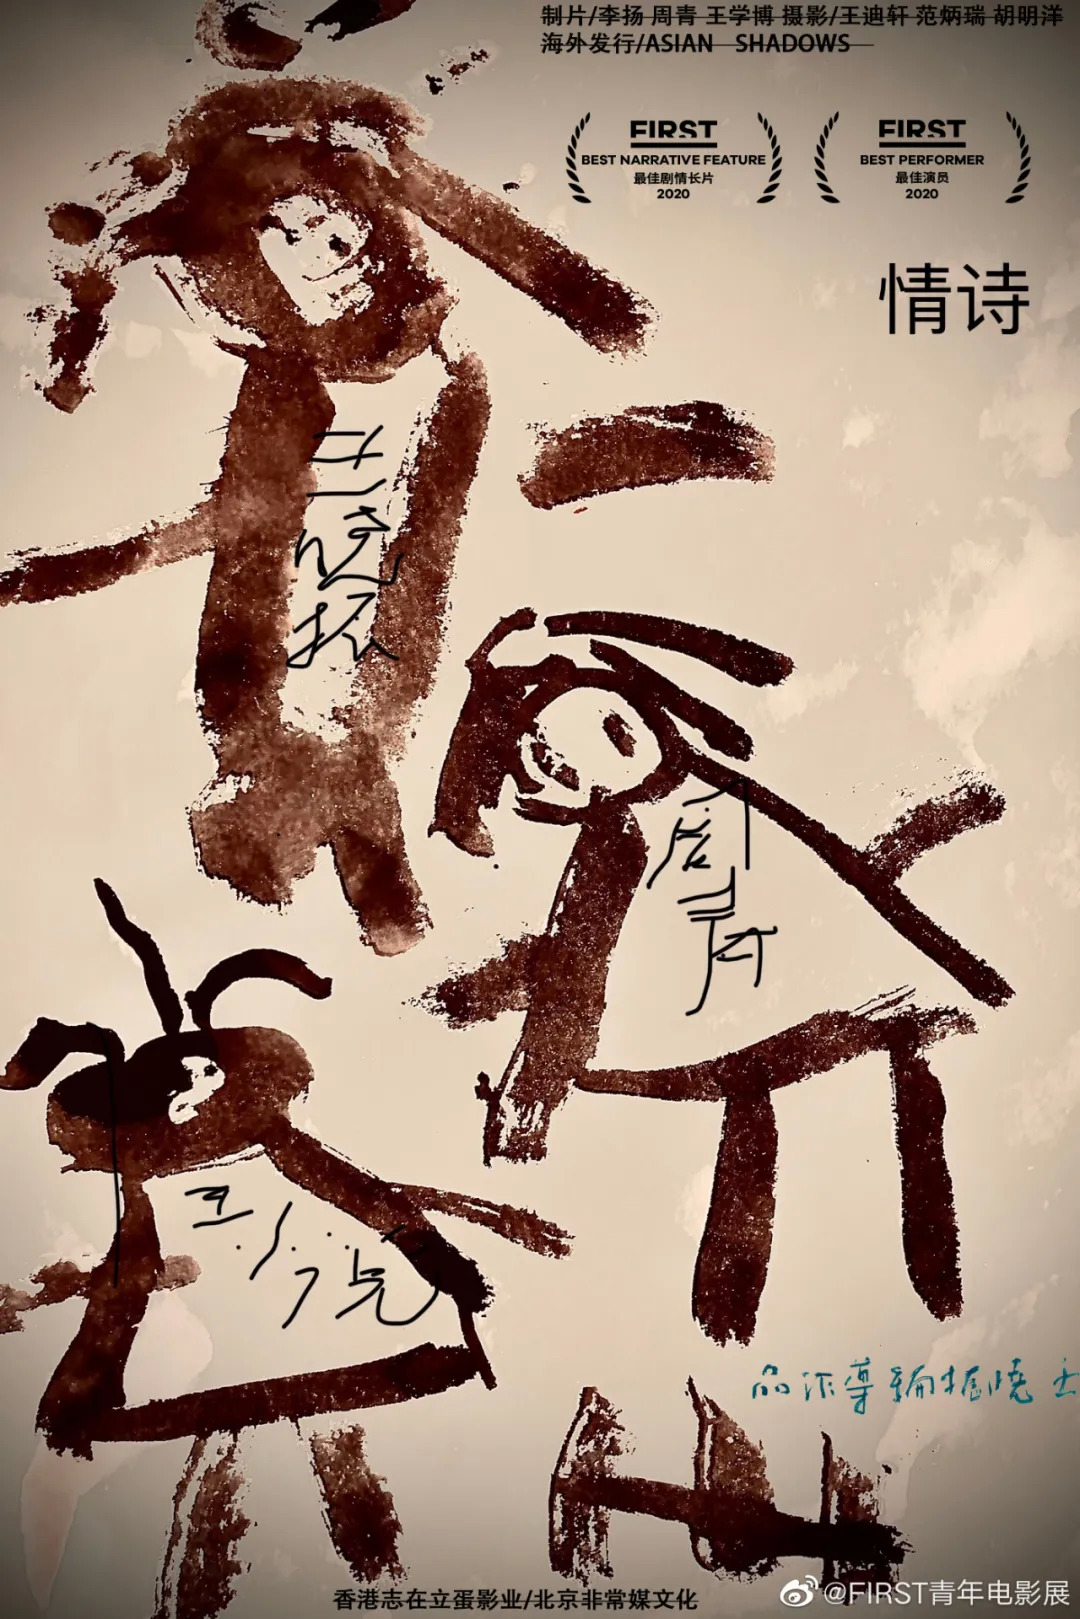 制片/李扬 周青 王学博 摄影/王迪轩 范炳瑞 胡明洋
海外发行/ASIAN SHADOWS
FIRST
BEST NARRATIVE FEATURE
最佳剧情长片
2020
FIRST
BEST PERFORMER
最佳演员
2020
情诗
王晓振
周青
品作導編振曉王
香港志在立蛋影业/北京非常媒文化
@FIRST青年电影展